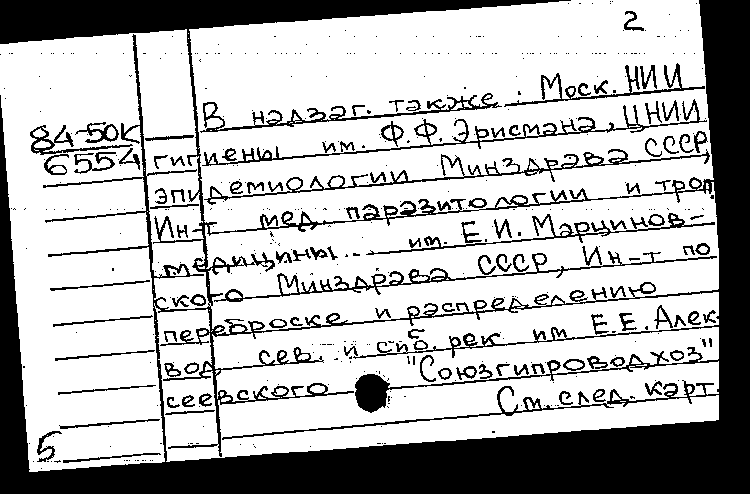 2
84-50К
6554
В надзаг. также: Моск. НИИ
гигиены им. Ф.Ф. Эрисмана, ЦНИИ
эпидемиологии Минздрава СССР,
Ин-т мед. паразитологии и троп.
медицины... им. Е.И. Марцинов-
ского Минздрава СССР, Ин-т по
переброске и распределению
вод сев. и сиб. рек им Е.Е. Алек-
сеевского "Союзгипроводхоз"
См. след. карт.
5